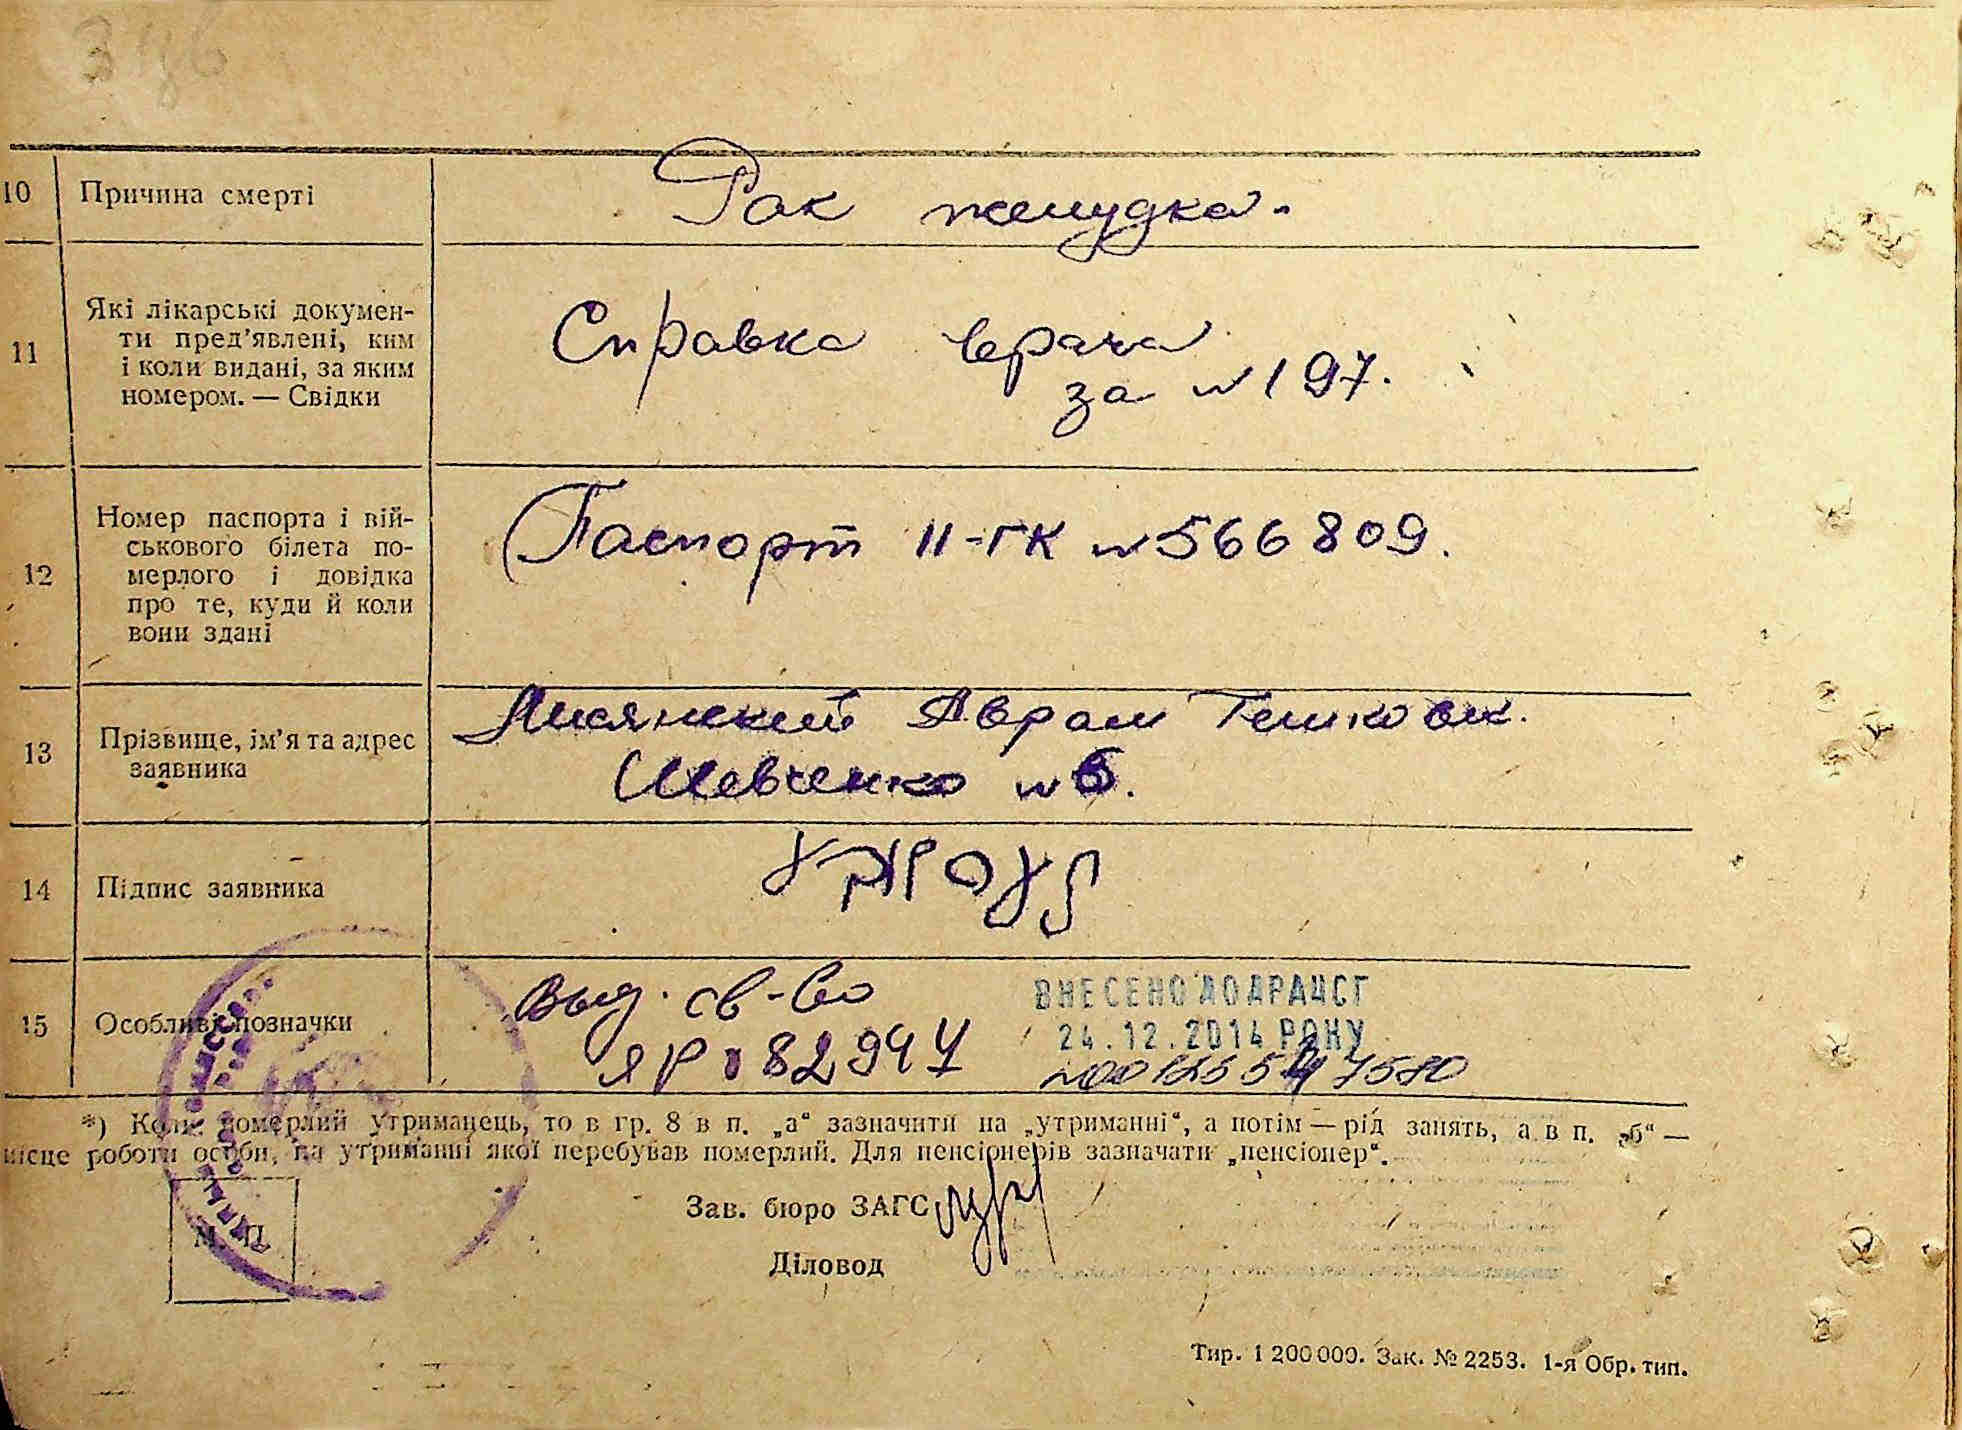 10 Причина смерті Рак желудка.
11 Які лікарські докумен-
ти пред'явлені, ким
і коли видані, за яким
номером. — Свідки
Справка врача
за № 197.
12 Номер паспорта і вій-
ськового білета по-
мерлого і довідка
про те, куди й коли
вони здані
Паспорт II-ГК № 566809.
13 Прізвище, ім'я та адрес
заявника
Лисянский Аврам Тешков.
Шевченко № 6.
14 Підпис заявника
15 Особливі позначки
Выд. св-во
ЯР 082947
ВНЕСЕНО ДО ДРАЦСГ
24.12.2014 РОКУ
*) Коли померлий утриманець, то в гр. 8 в п. „а“ зазначити на „утриманні“, а потім — рід занять, а в п. „б“ —
місце роботи особи, на утриманні якої перебував померлий. Для пенсіонерів зазначати „пенсіонер“.
М. П.
Зав. бюро ЗАГС
Діловод
Тир. 1 200 000. Зак. № 2253. 1-я Обр. тип.